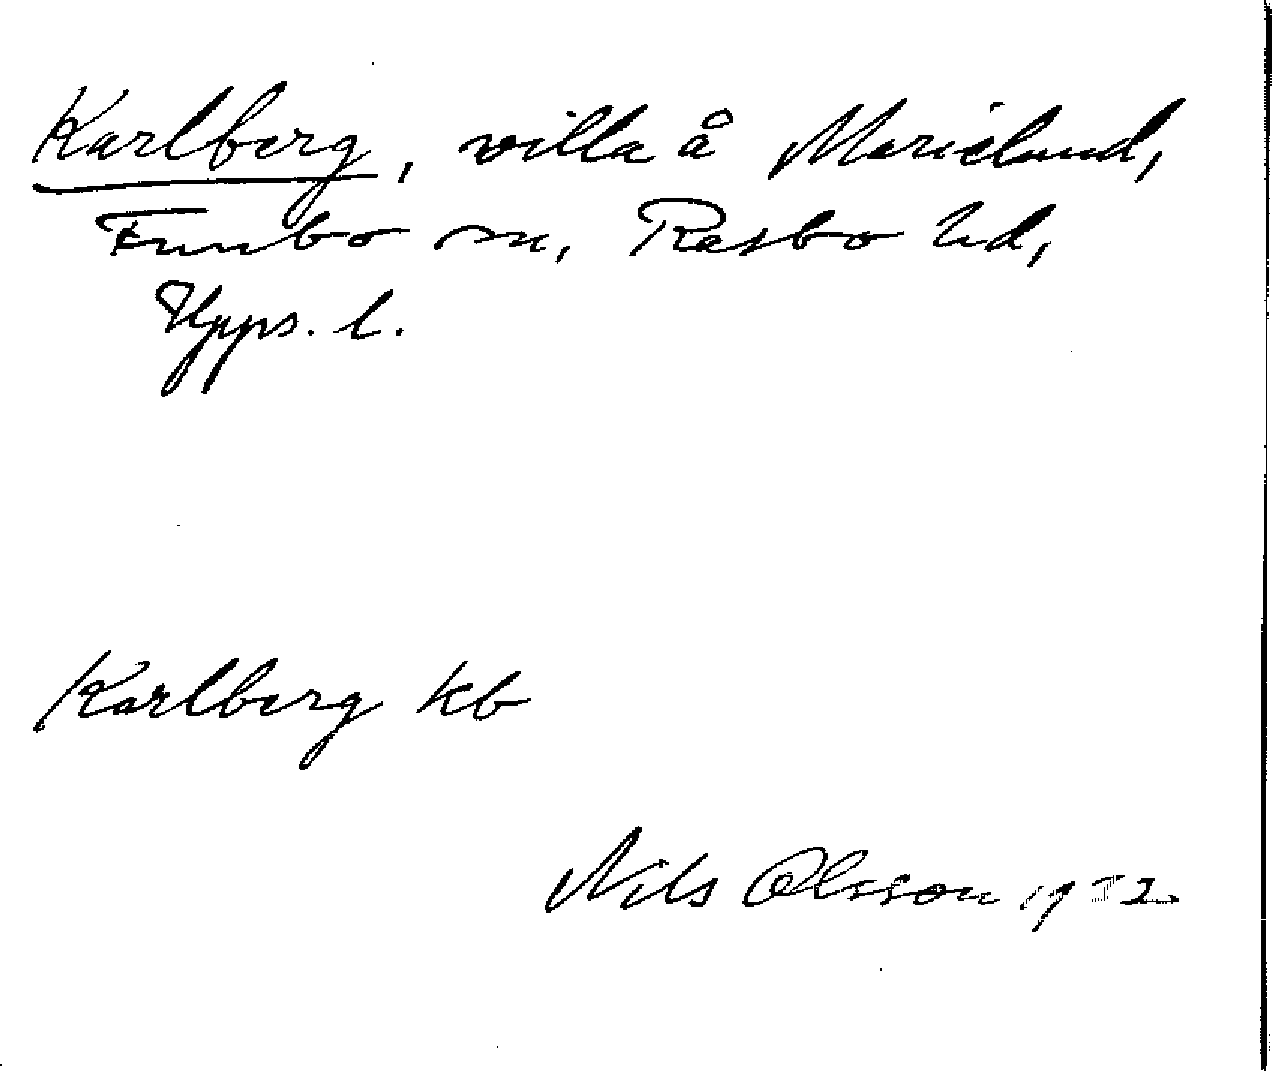 Karlberg, villa å Marielund,
Funbo sn, Rasbo hd,
Upps. l.
Karlberg kb
Nils Olsson